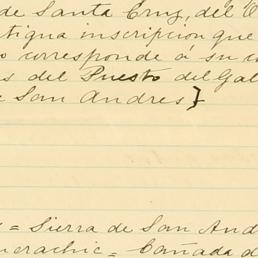 de Santa Cruz, del
tigua inscripcion que
corresponde á su
del Puesto del Gal
San Andres}
= Sierra de San And
= Cañada d